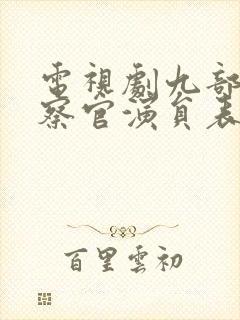 電視劇九部
察官演員表
百里雲初